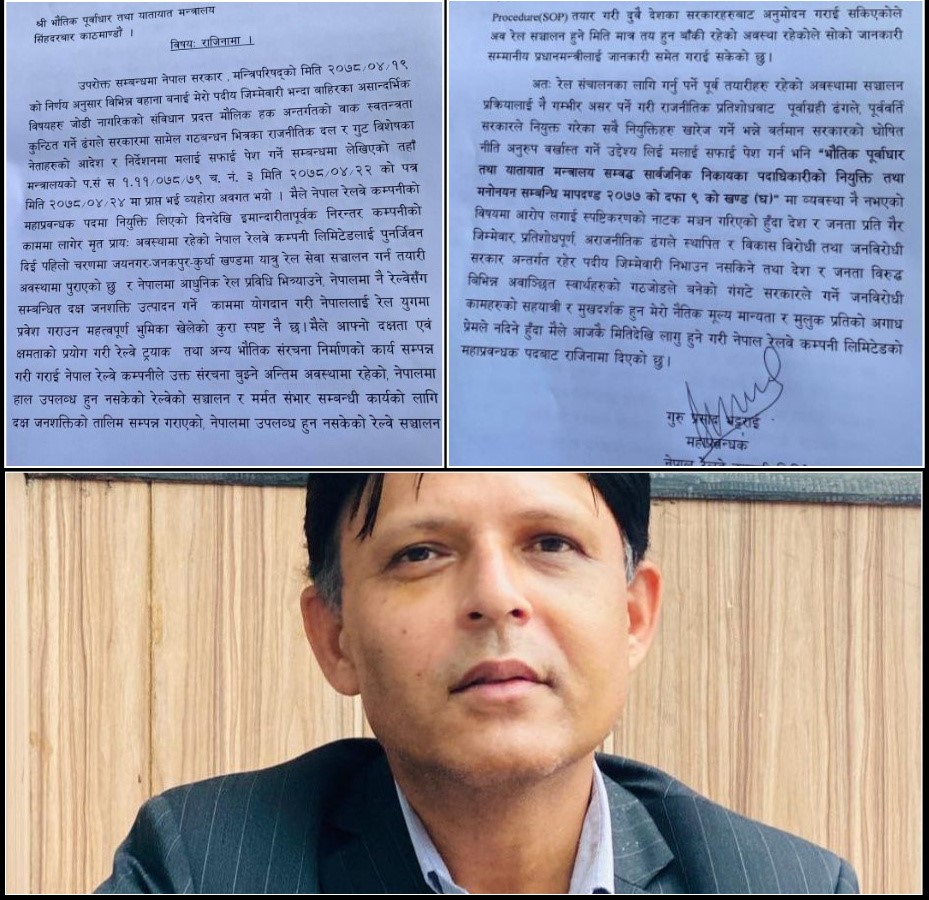 श्री भौतिक पूर्वाधार तथा यातायात मन्त्रालय
सिंहदरबार काठमाण्डौं ।
विषय: राजिनामा ।
उपरोक्त सम्बन्धमा नेपाल सरकार , मन्त्रिपरिषद्को मिति २०७८/०४/१९
को निर्णय अनुसार विभिन्न वहाना बनाई मेरो पदीय जिम्मेवारी भन्दा बाहिरका असान्दर्भिक
विषयहरु जोडी नागरिकको संविधान प्रदत्त मौलिक हक अन्तर्गतको वाक स्वतन्त्रता
कुन्ठित गर्ने ढंगले सरकारमा सामेल गठबन्धन भित्रका राजनीतिक दल र गुट विशेषका
नेताहरुको आदेश र निर्देशनमा मलाई सफाई पेश गर्ने सम्बन्धमा लेखिएको तहाँ
मन्त्रालयको प.सं स १.११/०७८/७९ च. नं. ३ मिति २०७८/०४/२२ को पत्र
मिति २०७८/०४/२४ मा प्राप्त भई व्यहोरा अवगत भयो । मैले नेपाल रेलवे कम्पनीको
महाप्रबन्धक पदमा नियुक्ति लिएको दिनदेखि इमान्दारीतापूर्वक निरन्तर कम्पनीको
काममा लागेर मृत प्रायः अवस्थामा रहेको नेपाल रेलवे कम्पनी लिमिटेडलाई पुनर्जिवन
दिई पहिलो चरणमा जयनगर-जनकपुर-कुर्था खण्डमा यात्रु रेल सेवा सञ्चालन गर्न तयारी
अवस्थामा पुराएको छु र नेपालमा आधुनिक रेल प्रविधि भित्र्याउने, नेपालमा नै रेल्वेसँग
सम्बन्धित दक्ष जनशक्ति उत्पादन गर्ने काममा योगदान गरी नेपाललाई रेल युगमा
प्रवेश गराउन महत्वपूर्ण भुमिका खेलेको कुरा स्पष्ट नै छ।मैले आफ्नो दक्षता एवं
क्षमताको प्रयोग गरी रेल्वे ट्र्याक तथा अन्य भौतिक संरचना निर्माणको कार्य सम्पन्न
गरी गराई नेपाल रेल्वे कम्पनीले उक्त संरचना बुझ्ने अन्तिम अवस्थामा रहेको, नेपालमा
हाल उपलव्ध हुन नसकेको रेल्वेको सञ्चालन र मर्मत संभार सम्बन्धी कार्यको लागि
दक्ष जनशक्तिको तालिम सम्पन्न गराएको, नेपालमा उपलव्ध हुन नसकेको रेल्वे सञ्चालन
Procedure(SOP) तयार गरी दुबै देशका सरकारहरुबाट अनुमोदन गराई सकिएकोले
अव रेल सञ्चालन हुने मिति मात्र तय हुन बाँकी रहेको अवस्था रहेकोले सोको जानकारी
सम्मानीय प्रधानमन्त्रीलाई जानकारी समेत गराई सकेको छु ।
अतः रेल संचालनका लागि गर्नु पर्ने पूर्व तयारीहरु रहेको अवस्थामा सञ्चालन
प्रक्रियालाई नै गम्भीर असर पर्ने गरी राजनीतिक प्रतिशोधबाट पूर्वाग्रही ढंगले, पूर्ववर्ति
सरकारले नियुक्त गरेका सवै नियुक्तिहरु खारेज गर्ने भन्ने वर्तमान सरकारको घोषित
नीति अनुरुप बर्खास्त गर्ने उद्देश्य लिई मलाई सफाई पेश गर्न भनि "भौतिक पूर्वाधार
तथा यातायात मन्त्रालय सम्बद्ध सार्वजनिक निकायका पदाधिकारीको नियुक्ति तथा
मनोनयन सम्बन्धि मापदण्ड २०७७ को दफा ९ को खण्ड (घ)" मा व्यवस्था नै नभएको
विषयमा आरोप लगाई स्पष्टिकरणको नाटक मञ्चन गरिएको हुँदा देश र जनता प्रति गैर
जिम्मेवार, प्रतिशोधपूर्ण, अराजनीतिक ढंगले स्थापित र विकास विरोधी तथा जनविरोधी
सरकार अन्तर्गत रहेर पदीय जिम्मेवारी निभाउन नसकिने तथा देश र जनता विरुद्ध
विभिन्न अवाञ्छित स्वार्थहरुको गठजोडले बनेको गंगटे सरकारले गर्ने जनविरोधी
कामहरुको सहयात्री र मुखदर्शक हुन मेरो नैतिक मूल्य मान्यता र मुलुक प्रतिको अगाध
प्रेमले नदिने हुँदा मैले आजकै मितिदेखि लागु हुने गरी नेपाल रेलवे कम्पनी लिमिटेडको
महाप्रबन्धक पदबाट राजिनामा दिएको छु।
गुरु प्रसाद भट्टराई
महाप्रबन्धक